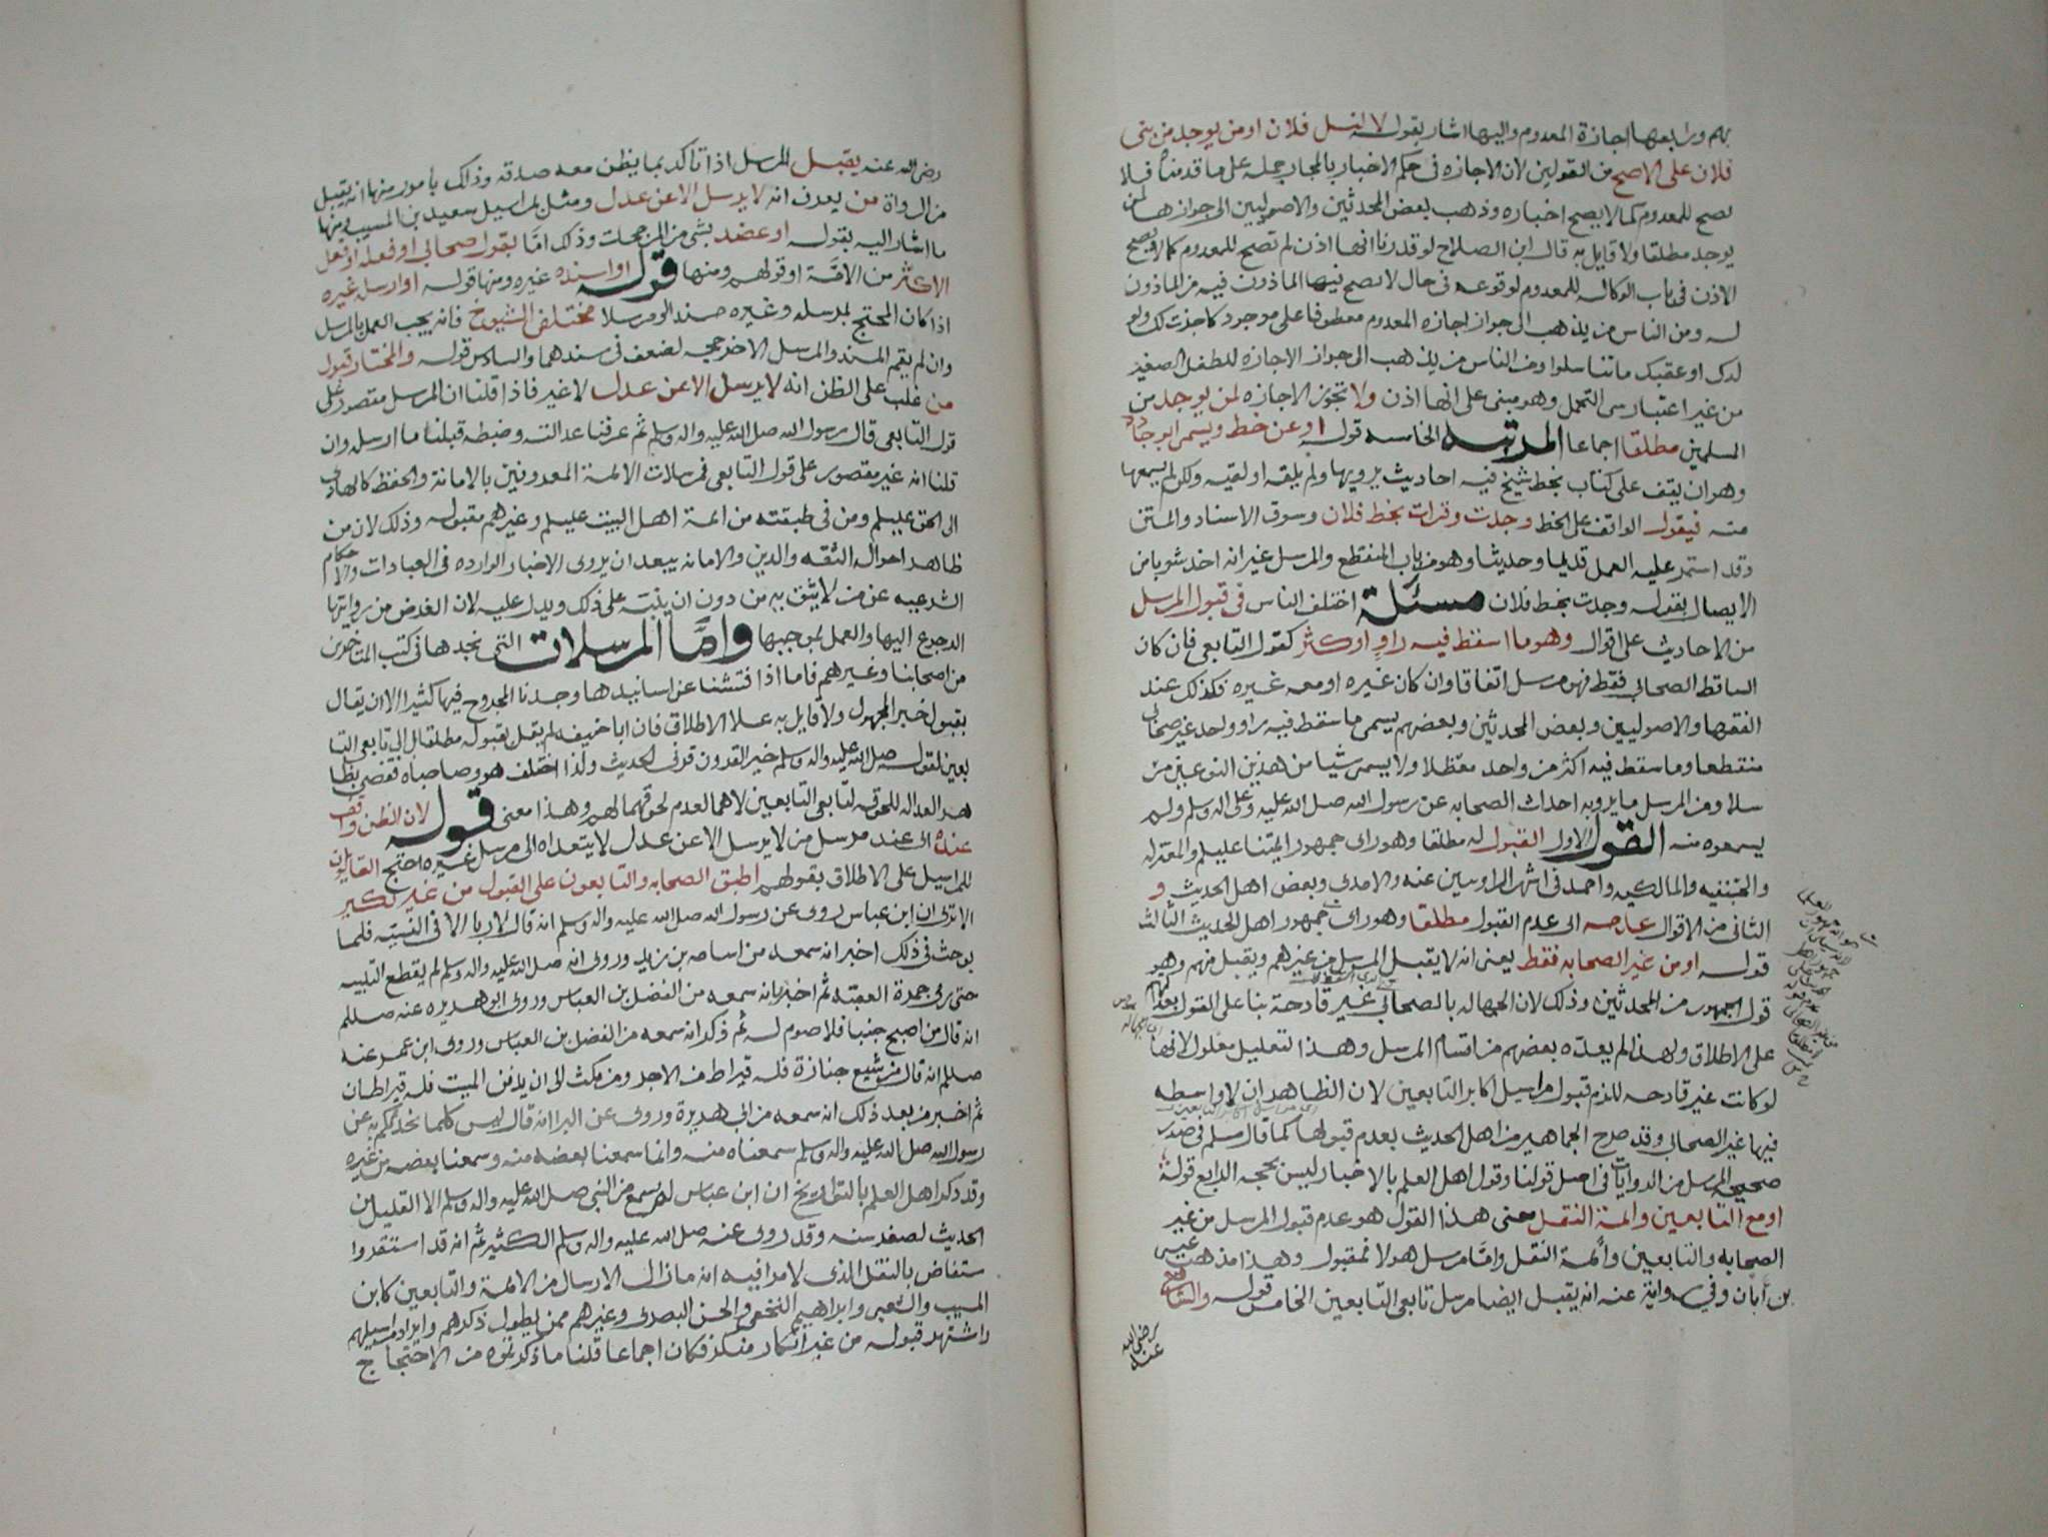 بهم ورابعها اجازة المعدوم واليها اشار بقوله لا لنسل فلان او من يوجد من بني
فلان على الاصح من القولين لان الاجازه في حكم الاخبار بالمجاز جمله على ما قدمناه فلا
تصح للمعدوم كما لا يصح اخباره وذهب بعض المحدثين والاصوليين الى جوازها لمن
يوجد مطلقا ولا قايل به قال ابن الصلاح لو قدرنا انها اذن لم تصح للمعدوم كما لا يصح
الاذن في باب الوكاله للمعدوم لوقوعه في حال لا تصح فيها الماذون فيه من الماذون
له ومن الناس من يذهب الى جواز اجازه المعدوم معطوفا على موجود كاجزت لك ولو
لدك او عقبك ما تناسلوا ومن الناس من يذهب الى جواز الاجازه للطفل الصغير
من غير اعتبار سن التحمل وهو مبني على انها اذن ولا تجوز الاجازه لمن يوجد من
المسلمين مطلقا اجماعا المرتبه الخامسه قوله او عن خط ويسمى الوجاده
وهو ان يقف على كتاب بخط شيخ فيه احاديث يرويها ولم يلقه او لقيه ولكن لم يسمعها
منه فيقول الواقف على الخط وجدت وقرات بخط فلان وسوق الاسناد والمتن
وقد استمر عليه العمل قديما وحديثا وهو من باب المنقطع والمرسل غير انه اخذ شوبا من
الايصال بقوله وجدت بخط فلان مسئلة اختلف الناس في قبول المرسل
من الاحاديث على اقوال وهو ما اسقط فيه راو او اكثر كقول التابعي فان كان
الساقط الصحابي فقط فهو مرسل اتفاقا وان كان غيره او معه غيره فكذلك عند
الفقها والاصوليين وبعض المحدثين وبعضهم يسمى ما سقط فيه راو واحد غير صحابي
منقطعا وما سقط فيه اكثر من واحد معضلا ولا يسمى شيا من هذين النوعين مر
سلا ومن المرسل ما يرويه احداث الصحابه عن رسول الله صلى الله عليه وعلى اله وسلم ولم
يسمعوه منه القول الاول القبول له مطلقا وهو راي جمهور ايمتنا عليهم والمعتزله
والحنفيه والمالكيه واحمد في اشهر الروايتين عنه والامدي وبعض اهل الحديث و
الثاني من الاقوال عدمه الى عدم القبول مطلقا وهو راي جمهور اهل الحديث الثالث
قوله او من غير الصحابه فقط يعني انه لا يقبل المرسل من غيرهم ويقبل منهم وهو
قول الجمهور من المحدثين وذلك لان الجهاله بالصحابي غير قادحة بنا على القول بعدالتهم
على الاطلاق ولهذا لم يعده بعضهم من اقسام المرسل وهذا التعليل معلول لانها
لو كانت غير قادحه للزم قبول مراسيل اكابر التابعين لان الظاهر ان لا واسطه
فيها غير الصحابي وقد صرح الجماهير من اهل الحديث بعدم قبولها كما قال مسلم في صدر
صحيحه المرسل من الروايات في اصل قولنا وقول اهل العلم بالاخبار ليس بحجه الرابع قوله
او مع التابعين وائمة النقل معنى هذا القول هو عدم قبول المرسل من غير
الصحابه والتابعين وائمة النقل واما مرسل هولا فمقبول وهذا مذهب عيسى
بن أبان وفي رواية عنه انه يقبل ايضا مرسل تابعي التابعين الخامس قوله والشافعي
رضي الله
عنه
رضي الله عنه يقبل المرسل اذا تاكد بما يظن معه صدقه وذلك بامور منها انه يقبل
من الرواة من يعرف انه لا يرسل الا عن عدل ومثل بمراسيل سعيد بن المسيب ومنها
ما اشار اليه بقوله او عضد بشي من المرجحات وذلك اما بقول صحابي او فعله او فعل
الاكثر من الامة او قولهم ومنها قوله او اسنده غيره ومنها قوله او ارسله غيره
اذا كان المحتج بمرسله وغيره مسندا او مرسلا مختلفي الشيوخ فانه يجب العمل بالمرسل
وان لم يقم المسند والمرسل الاخر حجه لضعف في سندهما والسادس قوله والمختار قبول
من غلب على الظن انه لا يرسل الا عن عدل لا غير فاذا قلنا ان المرسل مقصور على
قول التابعي قال رسول الله صلى الله عليه واله وسلم ثم عرفنا عدالته وضبطه قبلنا ما ارسله وان
قلنا انه غير مقصور على قول التابعي فمرسلات الائمة المعروفين بالامانة والحفظ كالهادي
الى الحق عليلم ومن في طبقته من ائمة اهل البيت عليلم وغيرهم مقبوله وذلك لان من
ظاهر احوال الثقه والدين والامانه يبعد ان يروى الاخبار الوارده في العبادات والاحكام
الشرعيه عن من لا يثق به من دون ان ينبه على ذلك ويدل عليه لان الغرض من روايتها
الرجوع اليها والعمل بموجبها واما المرسلات التي نجدها في كتب المتاخرين
من اصحابنا وغيرهم فاما اذا فتشنا عن اسانيدها وجدنا المجروح فيها كثيرا الا ان يقال
بقبول خبر المجهول ولا قايل به علا الاطلاق فان ابا حنيفه لم يقل بقبوله مطلقا بل الى تابعي التا
بعين لقوله صلى الله عليه واله وسلم خير القرون قرني الحديث ولذا اختلف هو وصاحباه فقضى بظا
هر العداله للحوقه لتابعي التابعين لاهما لعدم لحوقهما لهم وهذا معنى قوله لان الظن واقف
عنده اي عند مرسل من لا يرسل الا عن عدل لا يتعداه الى مرسل غيره احتج القايلون
للمراسيل على الاطلاق بقولهم اطبق الصحابه والتابعون على القبول من غير نكير
الا ترى ان ابن عباس روى عن رسول الله صلى الله عليه واله وسلم انه قال لا ربا الا في النسيه فلما
بوحث في ذلك اخبر انه سمعه من اسامه بن زيد وروى انه صلى الله عليه واله وسلم لم يقطع التلبيه
حتى رمى جمرة العقبه ثم اخبر بانه سمعه من الفضل بن العباس وروى ابو هريره عنه صللم
انه قال من اصبح جنبا فلا صوم له ثم ذكر انه سمعه من الفضل بن العباس وروى ابن عمر عنه
صللم انه قال من شيع جنازة فله قيراط من الاجر ومن مكث الى ان يدفن الميت فله قيراطان
ثم اخبر من بعد ذلك انه سمعه من ابي هريرة وروى عن البرا انه قال ليس كلما نحدثكم به عن
رسول الله صلى الله عليه واله وسلم سمعناه منه وانما سمعنا بعضه منه وسمعنا بعضه من غيره
وقد ذكر اهل العلم بالتواريخ ان ابن عباس لم يسمع من النبي صلى الله عليه واله وسلم الا القليل من
الحديث لصغر سنه وقد روى عنه صلى الله عليه واله وسلم الكثير ثم انه قد استقروا
ستفاض بالنقل الذي لا مرا فيه انه مازال الارسال من الائمة والتابعين كابن
المسيب والشعبي وابراهيم النخعي والحسن البصري وغيرهم ممن يطول ذكرهم وايراد مراسيلهم
واشتهر قبوله من غير انكار منكر فكان اجماعا قلنا ما ذكرتموه من الاحتجاج